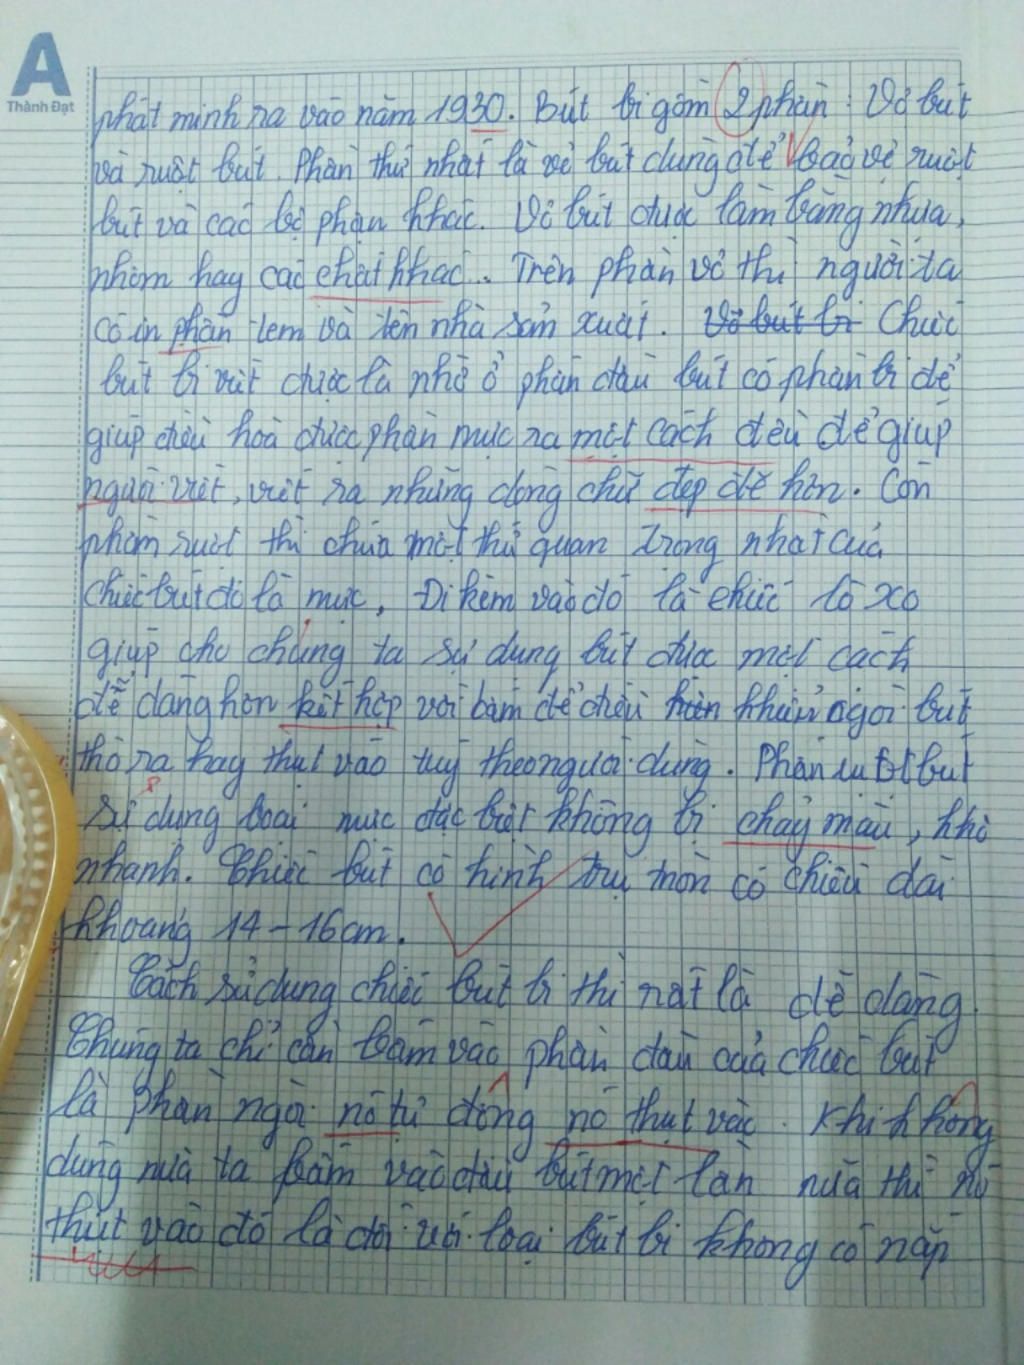 A
Thành Đạt
phát minh ra vào năm 1930. Bút bi gồm 2 phần: Vỏ bút
và ruột bút. Phần thứ nhất là vỏ bút dùng để bảo vệ ruột
bút và các bộ phận khác. Vỏ bút được làm bằng nhựa,
nhôm hay các chất khác... Trên phần vỏ thì người ta
có in phần tem và tên nhà sản xuất. Vỏ bút bi Chiếc
bút bi viết được là nhờ ở phần đầu bút có phần bi để
giúp điều hoà được phần mực ra một cách đều để giúp
người viết, viết ra những dòng chữ đẹp đẽ hơn. Còn
phần ruột thì chứa một thứ quan trọng nhất của
chiếc bút đó là mực, Đi kèm vào đó là chiếc lò xo
giúp cho chúng ta sự dụng bút được một cách
dễ dàng hơn kết hợp với bấm để điều khiển ngòi bút
thò ra hay thụt vào tuỳ theo người dùng. Phần bút
sự dụng loại mực đặc biệt không bị chảy màu, khô
nhanh. Chiếc bút có hình trụ tròn có chiều dài
khoảng 14 - 16cm.
Cách sử dụng chiếc bút bi thì rất là dễ dàng.
Chúng ta chỉ cần bấm vào phần đầu của chiếc bút
là phần ngòi nó tự động nó thụt vào. Khi không
dùng nữa ta bấm vào đầu bút một lần nữa thì nó
thụt vào đó là đối với loại bút bi không có nắp